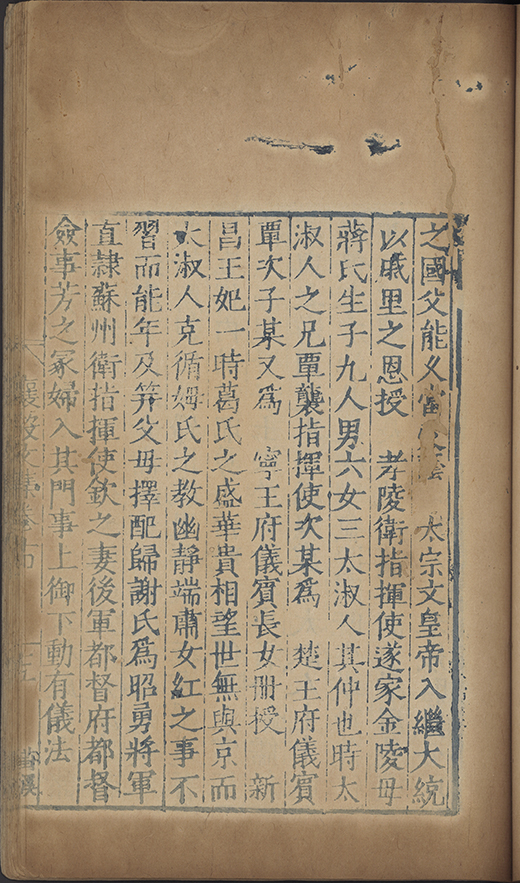 之國父能 太宗文皇帝入繼大統
以戚里之恩授 孝陵衛指揮使遂家金陵母
蔣氏生子九人男六女三太淑人其仲也時太
淑人之兄覃襲指揮使次某爲 楚王府儀賓
覃次子某又爲 寧王府儀賓長女冊授 新
昌王妃一時葛氏之盛華貴相望世無與京而
太淑人克循姆氏之教幽靜端肅女紅之事不
習而能年及筓父母擇配歸謝氏爲昭勇將軍
直隷蘇州衛指揮使欽之妻後軍都督府都督
僉事芳之冢婦入其門事上御下動有儀法